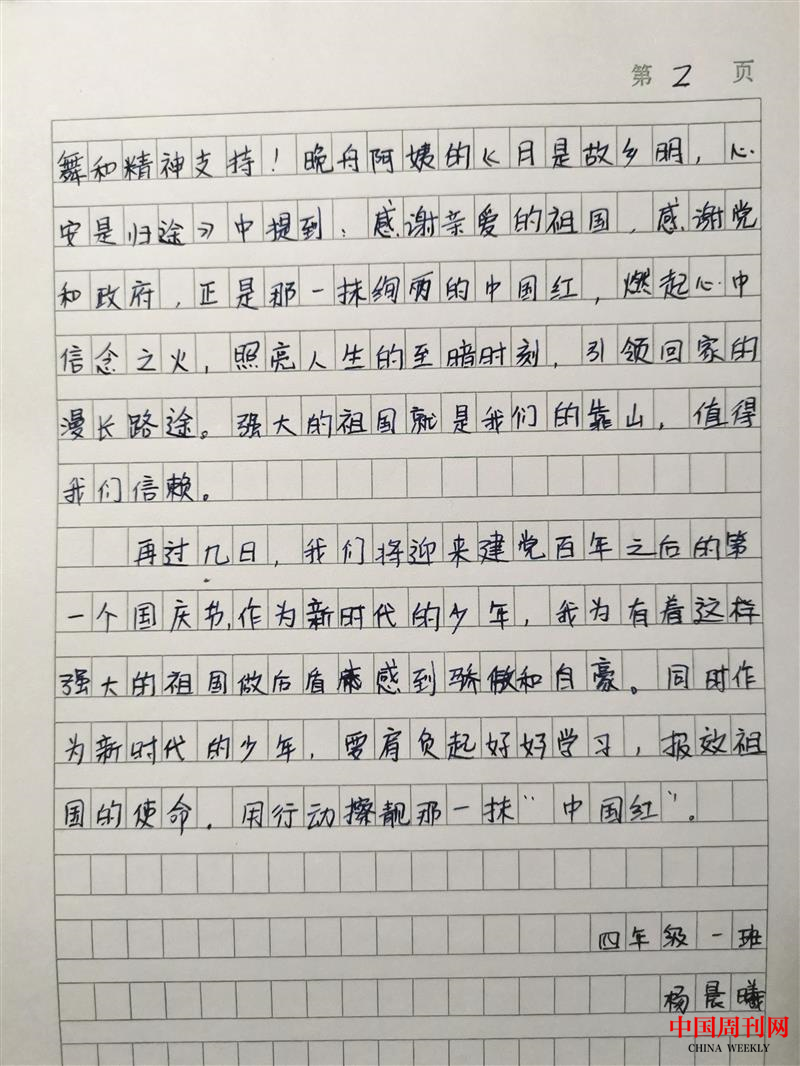 第 2 页
舞和精神支持！晚舟阿姨的《月是故乡明，心
安是归途》中提到：感谢亲爱的祖国，感谢党
和政府，正是那一抹绚丽的中国红，燃起心中
信念之火，照亮人生的至暗时刻，引领回家的
漫长路途。强大的祖国就是我们的靠山，值得
我们信赖。
再过几日，我们将迎来建党百年之后的第
一个国庆节，作为新时代的少年，我为有着这样
强大的祖国做后盾感到骄傲和自豪。同时作
为新时代的少年，要肩负起好好学习，报效祖
国的使命．用行动擦靓那一抹“中国红”。
四年级一班
杨晨曦
中国周刊网
CHINA WEEKLY